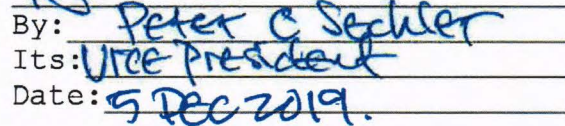 By: Peter C Sechler
Its: Vice President
Date: 5 DEC 2019.